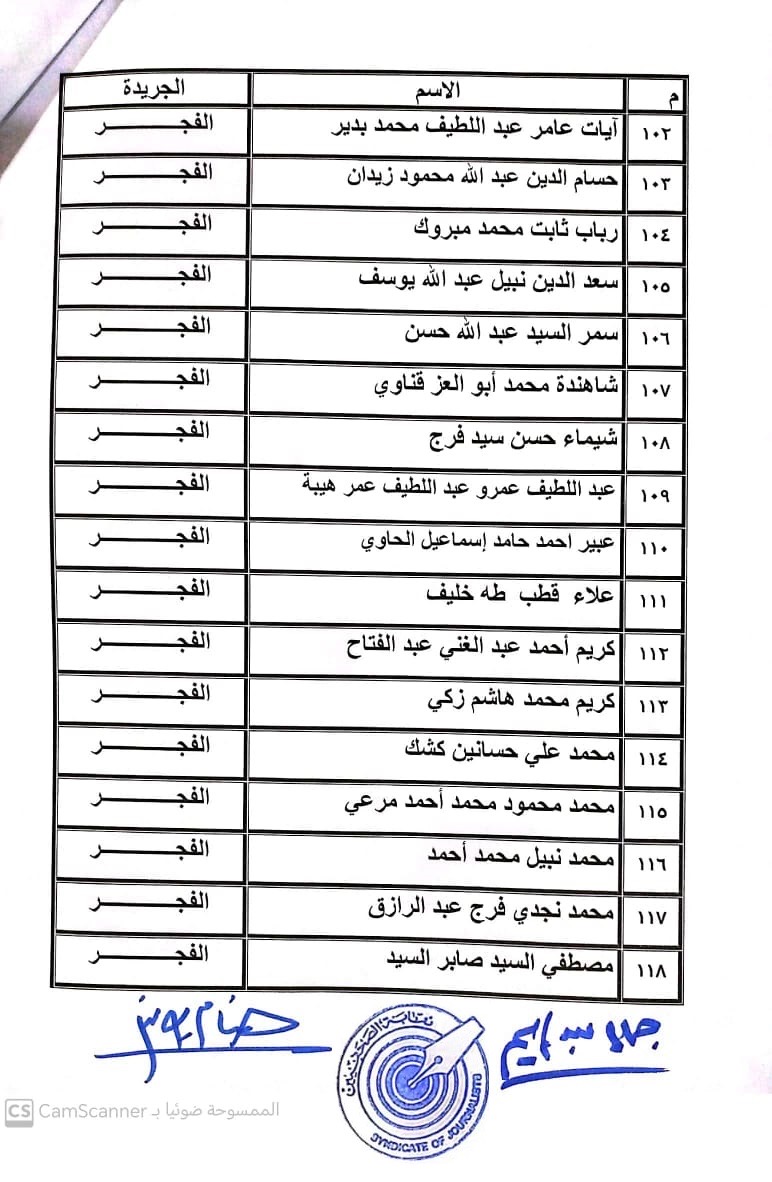 م الاسم الجريدة
١٠٢ آيات عامر عبد اللطيف محمد بدير الفجــــــر
١٠٣ حسام الدين عبد الله محمود زيدان الفجــــــر
١٠٤ رباب ثابت محمد مبروك الفجــــــر
١٠٥ سعد الدين نبيل عبد الله يوسف الفجــــــر
١٠٦ سمر السيد عبد الله حسن الفجــــــر
١٠٧ شاهندة محمد أبو العز قناوي الفجــــــر
١٠٨ شيماء حسن سيد فرج الفجــــــر
١٠٩ عبد اللطيف عمرو عبد اللطيف عمر هيبة الفجــــــر
١١٠ عبير احمد حامد إسماعيل الحاوي الفجــــــر
١١١ علاء قطب طه خليف الفجــــــر
١١٢ كريم أحمد عبد الغني عبد الفتاح الفجــــــر
١١٣ كريم محمد هاشم زكي الفجــــــر
١١٤ محمد علي حسانين كشك الفجــــــر
١١٥ محمد محمود محمد أحمد مرعي الفجــــــر
١١٦ محمد نبيل محمد أحمد الفجــــــر
١١٧ محمد نجدي فرج عبد الرازق الفجــــــر
١١٨ مصطفي السيد صابر السيد الفجــــــر
نقابة الصحفيين
SYNDICATE OF JOURNALISTS
الممسوحة ضوئيا بـ CamScanner
CS